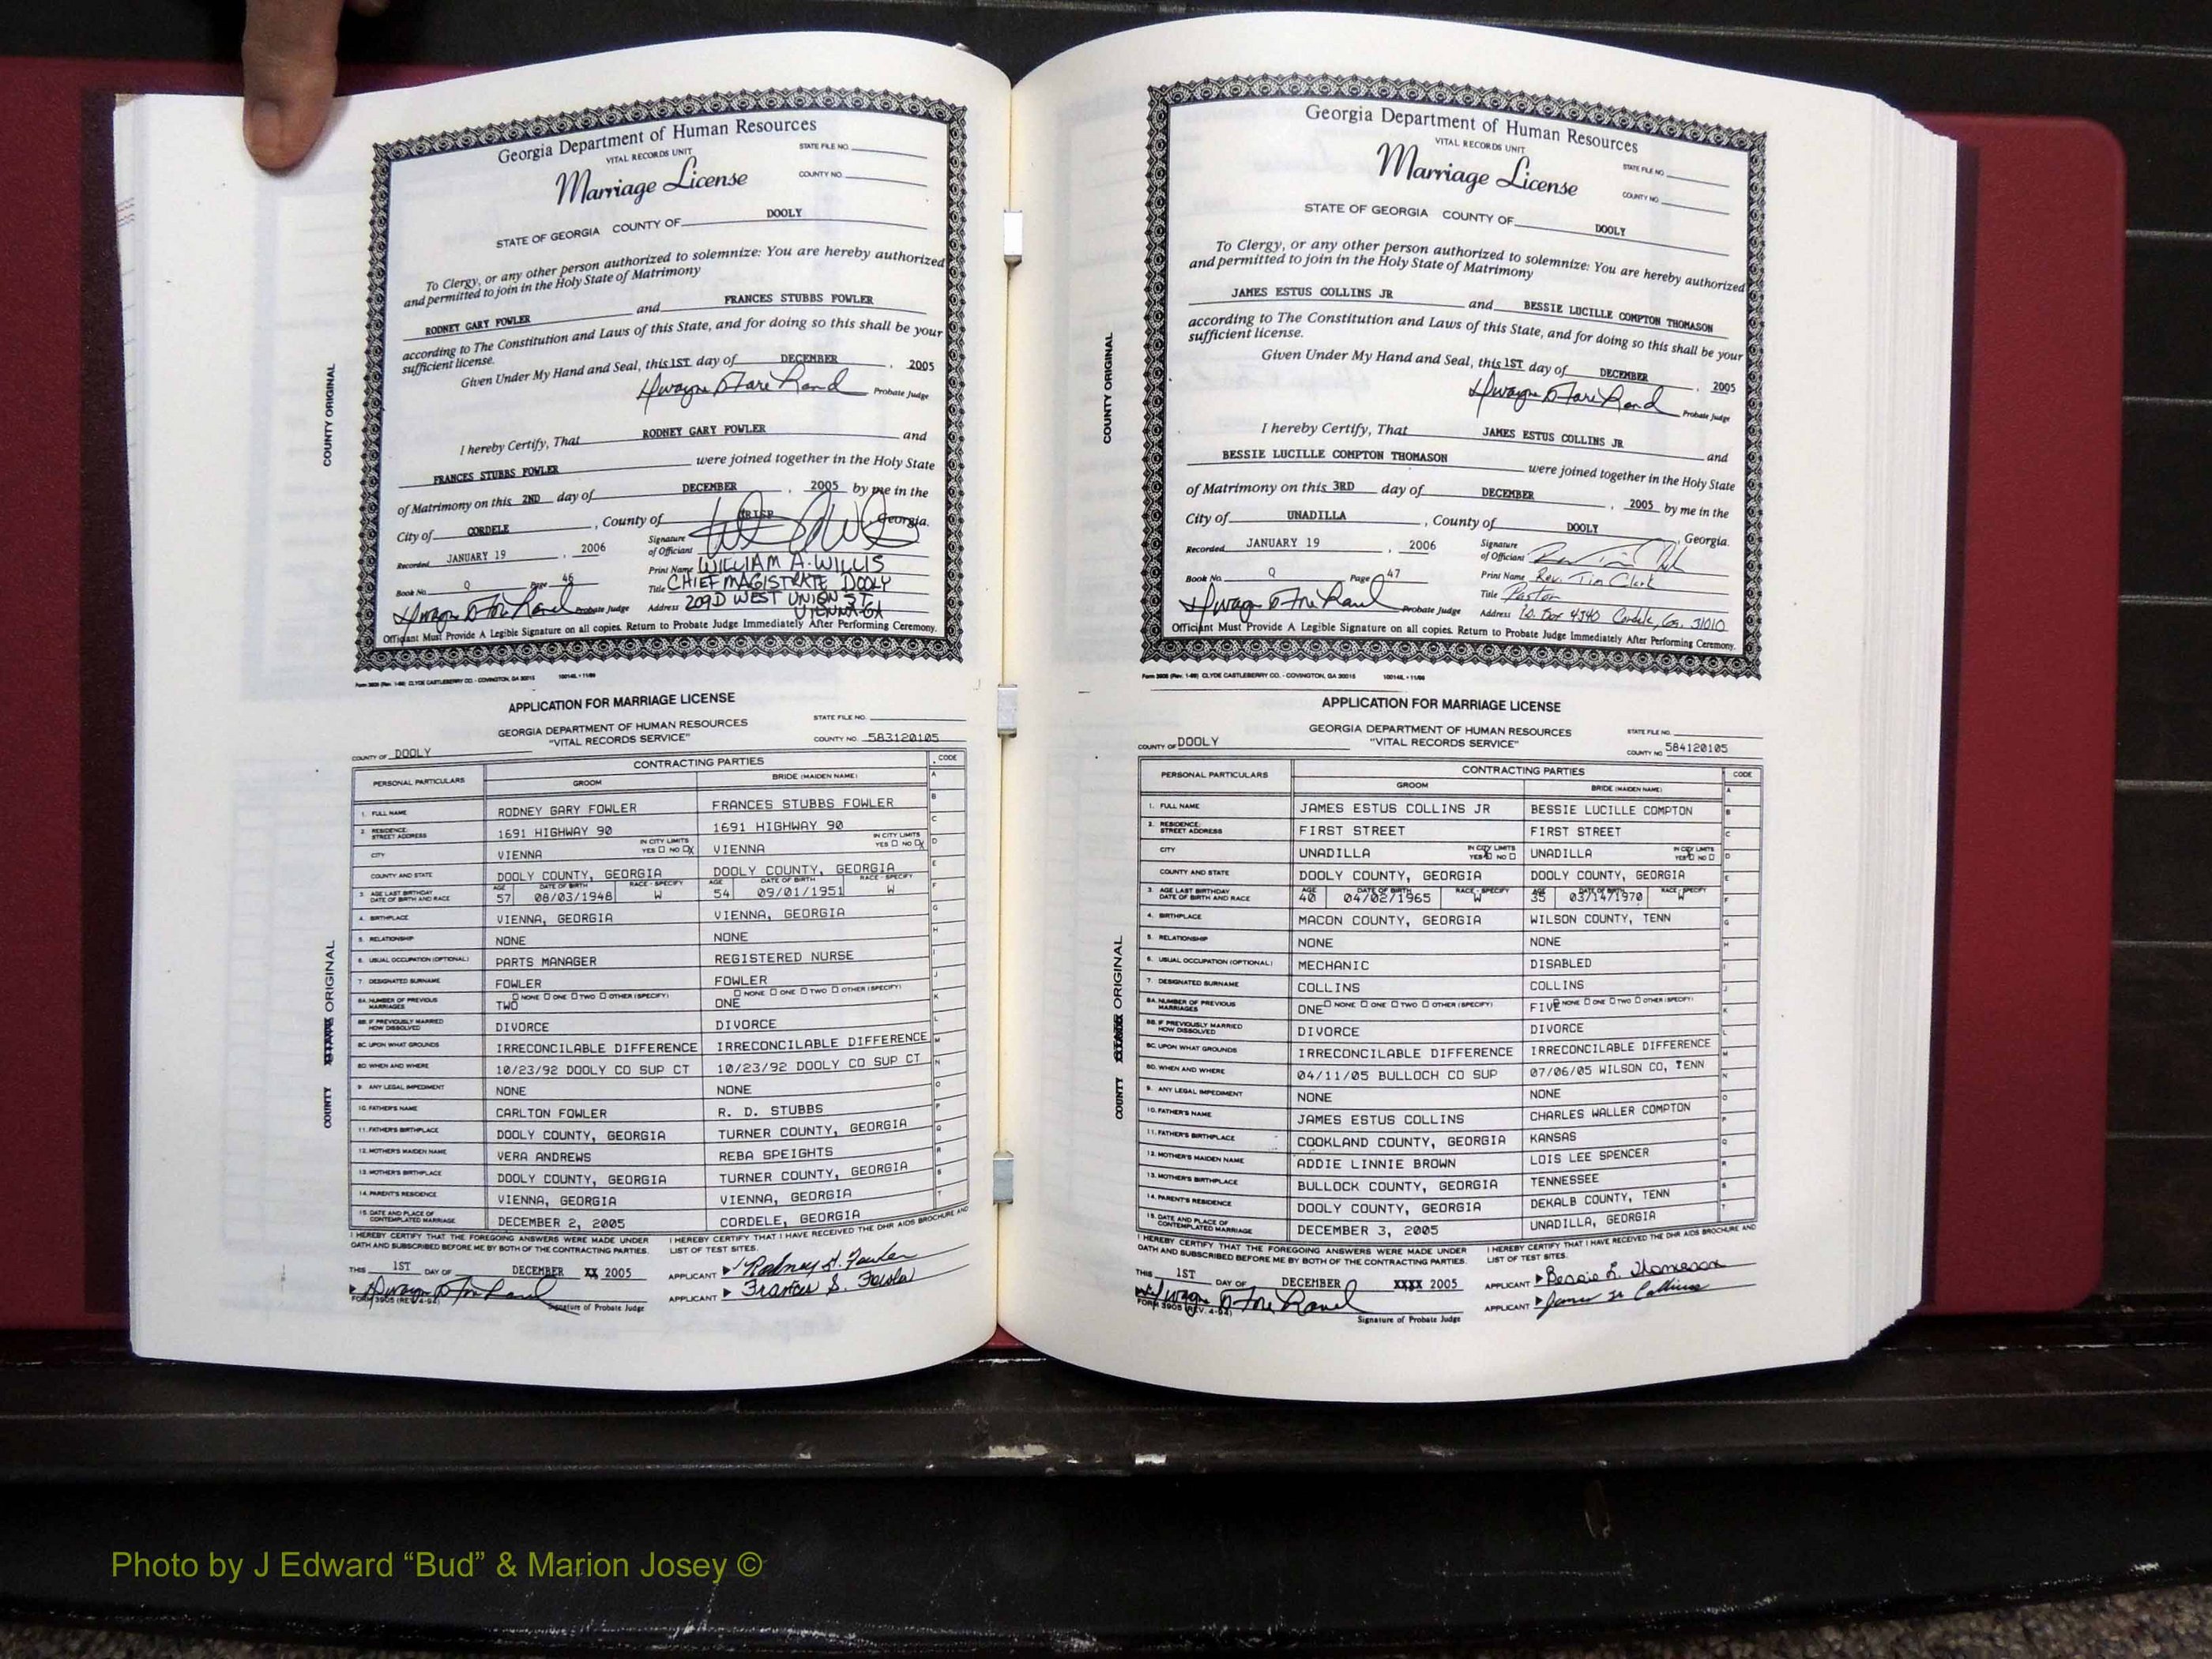 Georgia Department of Human Resources
VITAL RECORDS UNIT
STATE FILE NO.
Marriage License
COUNTY NO.
STATE OF GEORGIA COUNTY OF DOOLY
To Clergy, or any other person authorized to solemnize: You are hereby authorized
and permitted to join in the Holy State of Matrimony
RODNEY GARY FOWLER and FRANCES STUBBS FOWLER
according to The Constitution and Laws of this State, and for doing so this shall be your
sufficient license.
Given Under My Hand and Seal, this 1ST day of DECEMBER, 2005
Probate Judge
I hereby Certify, That RODNEY GARY FOWLER and
FRANCES STUBBS FOWLER were joined together in the Holy State
of Matrimony on this 2ND day of DECEMBER, 2005 by me in the
City of CORDELE, County of CRISP, Georgia.
Signature of Officiant
Recorded JANUARY 19, 2006
Print Name WILLIAM A. WILLIS
Book No. Q Page 46
Title CHIEF MAGISTRATE DOOLY
Probate Judge
Address 209D WEST UNION ST.
VIENNA GA
Officiant Must Provide A Legible Signature on all copies. Return to Probate Judge Immediately After Performing Ceremony.
COUNTY ORIGINAL
Form 3908 (Rev. 1-89) CLYDE CASTLEBERRY CO. - COVINGTON, GA 30015
APPLICATION FOR MARRIAGE LICENSE
GEORGIA DEPARTMENT OF HUMAN RESOURCES
"VITAL RECORDS SERVICE"
STATE FILE NO.
COUNTY NO. 583120105
COUNTY OF DOOLY
PERSONAL PARTICULARS CONTRACTING PARTIES CODE
GROOM BRIDE (MAIDEN NAME)
1. FULL NAME RODNEY GARY FOWLER FRANCES STUBBS FOWLER
2. RESIDENCE: STREET ADDRESS 1691 HIGHWAY 90 1691 HIGHWAY 90
CITY VIENNA IN CITY LIMITS YES NO X VIENNA IN CITY LIMITS YES NO X
COUNTY AND STATE DOOLY COUNTY, GEORGIA DOOLY COUNTY, GEORGIA
3. AGE LAST BIRTHDAY DATE OF BIRTH AND RACE AGE 57 DATE OF BIRTH 08/03/1948 RACE - SPECIFY W AGE 54 DATE OF BIRTH 09/01/1951 RACE - SPECIFY W
4. BIRTHPLACE VIENNA, GEORGIA VIENNA, GEORGIA
5. RELATIONSHIP NONE NONE
6. USUAL OCCUPATION (OPTIONAL) PARTS MANAGER REGISTERED NURSE
7. DESIGNATED SURNAME FOWLER FOWLER
8A. NUMBER OF PREVIOUS MARRIAGES TWO NONE ONE TWO OTHER (SPECIFY) ONE NONE ONE TWO OTHER (SPECIFY)
8B. IF PREVIOUSLY MARRIED HOW DISSOLVED DIVORCE DIVORCE
8C. UPON WHAT GROUNDS IRRECONCILABLE DIFFERENCE IRRECONCILABLE DIFFERENCE
8D. WHEN AND WHERE 10/23/92 DOOLY CO SUP CT 10/23/92 DOOLY CO SUP CT
9. ANY LEGAL IMPEDIMENT NONE NONE
10. FATHER'S NAME CARLTON FOWLER R. D. STUBBS
11. FATHER'S BIRTHPLACE DOOLY COUNTY, GEORGIA TURNER COUNTY, GEORGIA
12. MOTHER'S MAIDEN NAME VERA ANDREWS REBA SPEIGHTS
13. MOTHER'S BIRTHPLACE DOOLY COUNTY, GEORGIA TURNER COUNTY, GEORGIA
14. PARENT'S RESIDENCE VIENNA, GEORGIA VIENNA, GEORGIA
15. DATE AND PLACE OF CONTEMPLATED MARRIAGE DECEMBER 2, 2005 CORDELE, GEORGIA
I HEREBY CERTIFY THAT THE FOREGOING ANSWERS WERE MADE UNDER
OATH AND SUBSCRIBED BEFORE ME BY BOTH OF THE CONTRACTING PARTIES.
I HEREBY CERTIFY THAT I HAVE RECEIVED THE DHR AIDS BROCHURE AND
LIST OF TEST SITES.
THIS 1ST DAY OF DECEMBER XX 2005
APPLICANT Rodney G. Fowler
APPLICANT Frances S. Fowler
FORM 3905 (REV. 4-94)
Signature of Probate Judge
COUNTY ORIGINAL
Georgia Department of Human Resources
VITAL RECORDS UNIT
STATE FILE NO.
Marriage License
COUNTY NO.
STATE OF GEORGIA COUNTY OF DOOLY
To Clergy, or any other person authorized to solemnize: You are hereby authorized
and permitted to join in the Holy State of Matrimony
JAMES ESTUS COLLINS JR and BESSIE LUCILLE COMPTON THOMASON
according to The Constitution and Laws of this State, and for doing so this shall be your
sufficient license.
Given Under My Hand and Seal, this 1ST day of DECEMBER, 2005
Probate Judge
I hereby Certify, That JAMES ESTUS COLLINS JR and
BESSIE LUCILLE COMPTON THOMASON were joined together in the Holy State
of Matrimony on this 3RD day of DECEMBER, 2005 by me in the
City of UNADILLA, County of DOOLY, Georgia.
Signature of Officiant
Recorded JANUARY 19, 2006
Print Name Rev. Tim Clark
Book No. Q Page 47
Title Pastor
Probate Judge
Address P.O. Box 4340 Cordele, Ga. 31010
Officiant Must Provide A Legible Signature on all copies. Return to Probate Judge Immediately After Performing Ceremony.
COUNTY ORIGINAL
Form 3908 (Rev. 1-89) CLYDE CASTLEBERRY CO. - COVINGTON, GA 30015
APPLICATION FOR MARRIAGE LICENSE
GEORGIA DEPARTMENT OF HUMAN RESOURCES
"VITAL RECORDS SERVICE"
STATE FILE NO.
COUNTY NO. 584120105
COUNTY OF DOOLY
PERSONAL PARTICULARS CONTRACTING PARTIES CODE
GROOM BRIDE (MAIDEN NAME)
1. FULL NAME JAMES ESTUS COLLINS JR BESSIE LUCILLE COMPTON
2. RESIDENCE: STREET ADDRESS FIRST STREET FIRST STREET
CITY UNADILLA IN CITY LIMITS YES X NO UNADILLA IN CITY LIMITS YES X NO
COUNTY AND STATE DOOLY COUNTY, GEORGIA DOOLY COUNTY, GEORGIA
3. AGE LAST BIRTHDAY DATE OF BIRTH AND RACE AGE 40 DATE OF BIRTH 04/02/1965 RACE - SPECIFY W AGE 35 DATE OF BIRTH 03/14/1970 RACE - SPECIFY W
4. BIRTHPLACE MACON COUNTY, GEORGIA WILSON COUNTY, TENN
5. RELATIONSHIP NONE NONE
6. USUAL OCCUPATION (OPTIONAL) MECHANIC DISABLED
7. DESIGNATED SURNAME COLLINS COLLINS
8A. NUMBER OF PREVIOUS MARRIAGES ONE NONE ONE TWO OTHER (SPECIFY) FIVE NONE ONE TWO OTHER (SPECIFY)
8B. IF PREVIOUSLY MARRIED HOW DISSOLVED DIVORCE DIVORCE
8C. UPON WHAT GROUNDS IRRECONCILABLE DIFFERENCE IRRECONCILABLE DIFFERENCE
8D. WHEN AND WHERE 04/11/05 BULLOCH CO SUP 07/06/05 WILSON CO, TENN
9. ANY LEGAL IMPEDIMENT NONE NONE
10. FATHER'S NAME JAMES ESTUS COLLINS CHARLES WALLER COMPTON
11. FATHER'S BIRTHPLACE COOKLAND COUNTY, GEORGIA KANSAS
12. MOTHER'S MAIDEN NAME ADDIE LINNIE BROWN LOIS LEE SPENCER
13. MOTHER'S BIRTHPLACE BULLOCK COUNTY, GEORGIA TENNESSEE
14. PARENT'S RESIDENCE DOOLY COUNTY, GEORGIA DEKALB COUNTY, TENN
15. DATE AND PLACE OF CONTEMPLATED MARRIAGE DECEMBER 3, 2005 UNADILLA, GEORGIA
I HEREBY CERTIFY THAT THE FOREGOING ANSWERS WERE MADE UNDER
OATH AND SUBSCRIBED BEFORE ME BY BOTH OF THE CONTRACTING PARTIES.
I HEREBY CERTIFY THAT I HAVE RECEIVED THE DHR AIDS BROCHURE AND
LIST OF TEST SITES.
THIS 1ST DAY OF DECEMBER XXXX 2005
APPLICANT Bessie L. Thomason
APPLICANT James Collins
Signature of Probate Judge
COUNTY ORIGINAL
Photo by J Edward “Bud” & Marion Josey ©